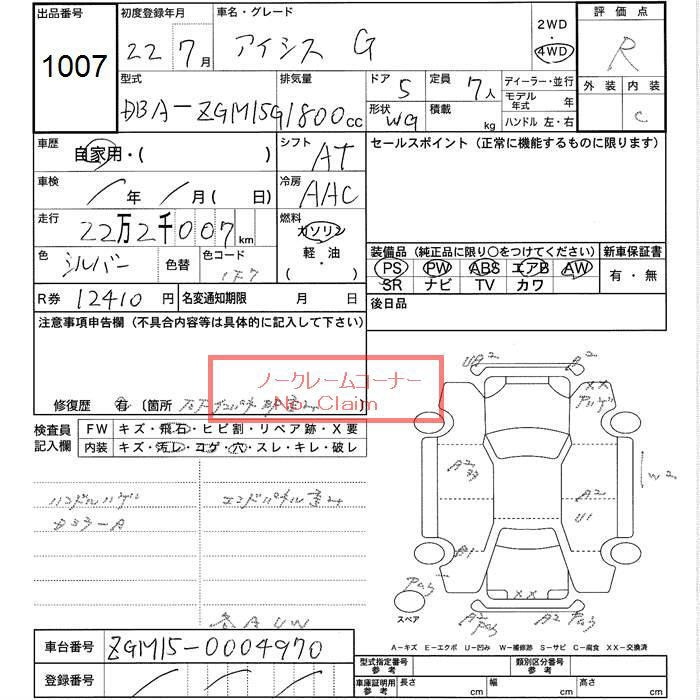 出品番号
1007
初度登録年月
22 7月
車名・グレード
アイシス G
2WD
・
4WD
評価点
R
外装 内装
C
型式
DBA-ZGM15G
排気量
1800cc
ドア 5
形状 WG
定員 7人
積載 kg
ディーラー・並行
モデル年式 年
ハンドル 左・右
車歴
自家用・( )
シフト AT
セールスポイント (正常に機能するものに限ります)
車検 / 年 / 月( 日)
冷房 AAC
走行 22万2千007km
燃料
ガソリン
軽・油
( ・ )
色 シルバー 色替
色コード 1F7
装備品 (純正品に限り〇をつけてください)
PS PW ABS エアB AW
SR ナビ TV カワ
新車保証書
有・無
R券 12410円
名変通知期限 月 日
後日品
注意事項申告欄 (不具合内容等は具体的に記入して下さい)
ノークレームコーナー
No Claim
修復歴 有 〔箇所 〕
検査員記入欄
FW キズ・飛石・ヒビ割・リペア跡・X要
内装 キズ・汚レ・コゲ・穴・スレ・キレ・破レ
ハンドルハゲ
エンドパネル歪み
U2 A2
XX
A2
W2
A2
U1
XX
スペア
A2 A2
A-キズ E-エクボ U-凹み W-補修跡 S-サビ C-腐食 XX-交換済
車台番号 ZGM15-0004970
登録番号
型式指定番号 参考
類別区分番号 参考
車庫証明用 参考 長さ cm 幅 cm 高さ cm